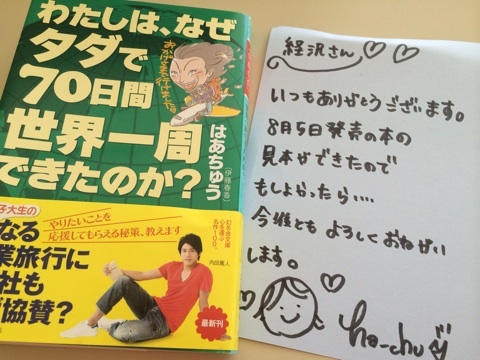 わたしは、なぜ
タダで
70日間
世界一周
できたのか?
おかげさまで行けました。
はあちゅう
(伊藤春香)
子大生の
なる
業旅行に
社も
協賛?
やりたいことを
応援してもらえる秘策、教えます
幻冬舎文庫
心を運ぶ
名作100。
内田篤人
最新刊
経沢さん
いつもありがとうございます。
8月5日発売の本の
見本ができたので
もしよかったら....
今後ともよろしくおねがい
します。
ha-chu